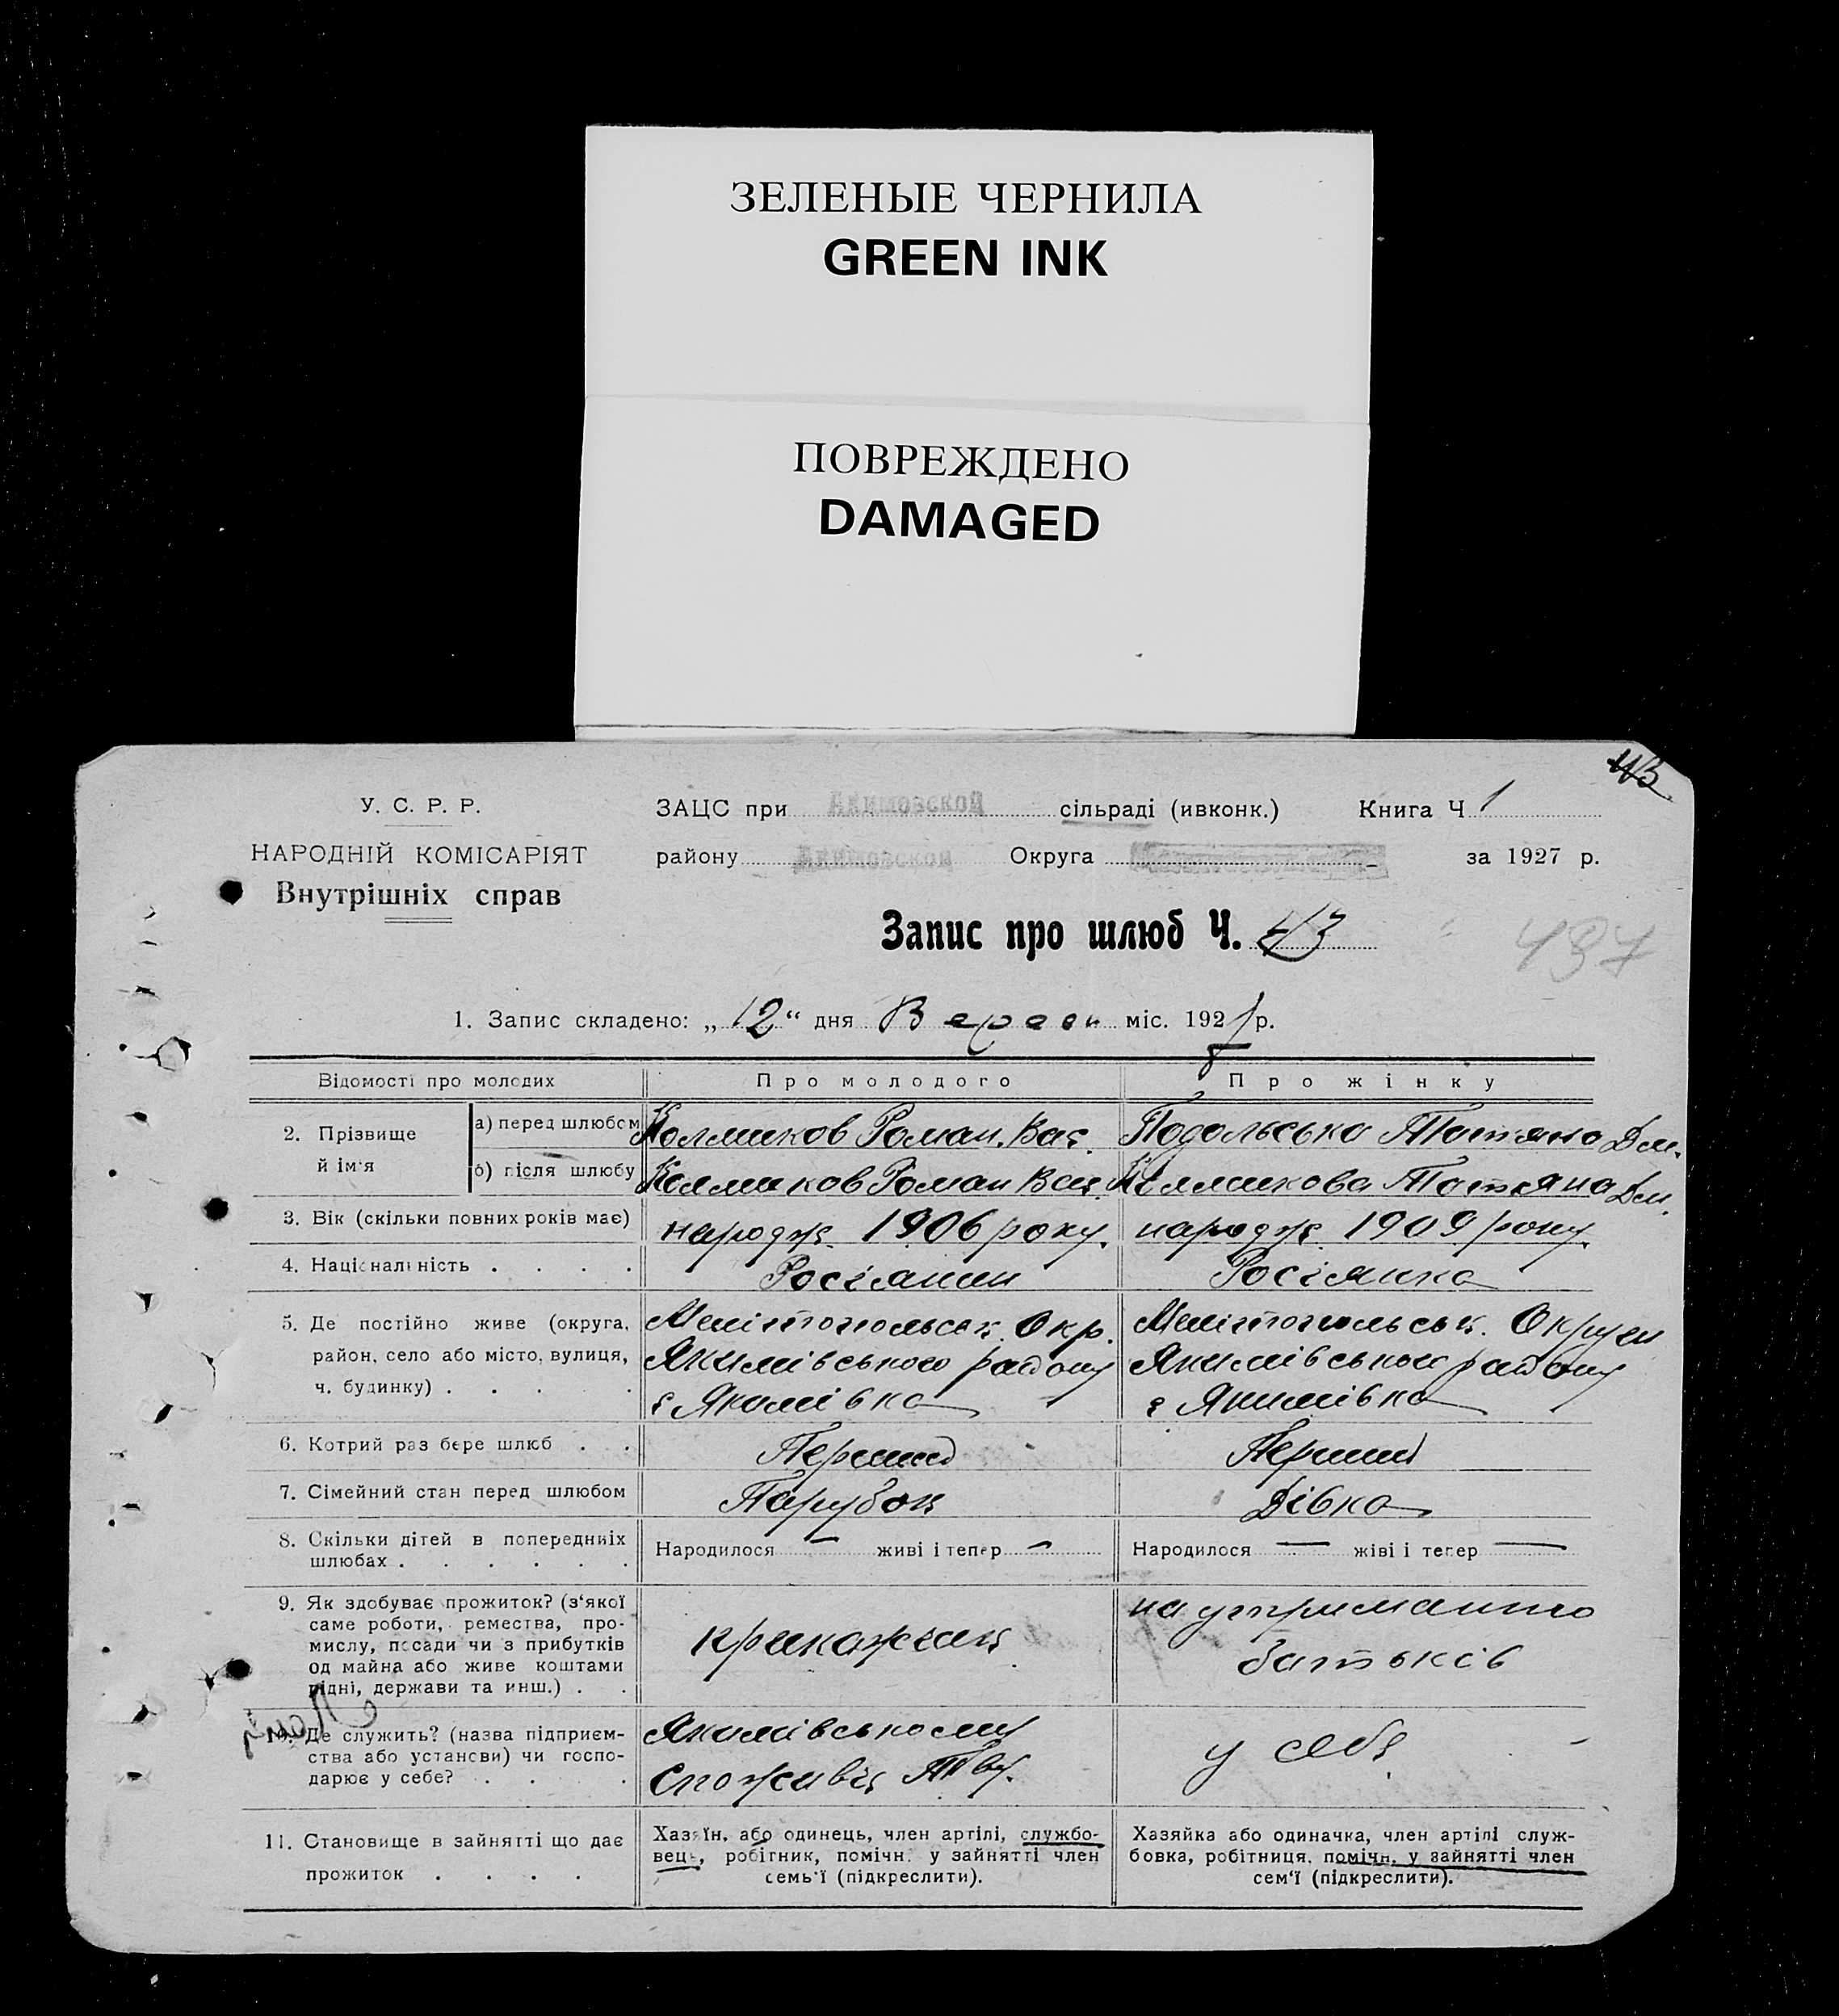 ЗЕЛЕНЫЕ ЧЕРНИЛА
GREEN INK
ПОВРЕЖДЕНО
DAMAGED
43
У. С. Р. Р.
НАРОДНІЙ КОМІСАРІЯТ
Внутрішніх справ
ЗАЦС при Акимовской сільраді (ивконк.) Книга Ч 1
району Акимовской Округа за 1927 р.
Запис про шлюб Ч. 43
497
1. Запис складено: „ 12 “ дня Вересн міс. 1927 р.
Відомості про молодих Про молодого Про жінку
2. Прізвище й ім'я
а) перед шлюбом Колмиков Роман. Вас. Подольська Татяна Дм.
б) після шлюбу Колмиков Роман Вас. Колмикова Татяна Дм.
3. Вік (скільки повних років має) народж. 1906 року. народж. 1909 року.
4. Національність . . . . Росіянин Росіянка
5. Де постійно живе (округа, Мелітопольськ. Окр. Мелітопольськ. Округи
район, село або місто, вулиця, Якимівського району Якимівського району
ч. будинку) . . . . с Якимівка с Якимівка
6. Котрий раз бере шлюб . . Перший Перший
7. Сімейний стан перед шлюбом Парубок Дівка
8. Скільки дітей в попередніх Народилося — живі і тепер — Народилося — жіві і тепер —
шлюбах . . . . . .
9. Як здобуває прожиток? (з'якої на утриманню
саме роботи, ремества, про-
мислу, посади чи з прибутків прикажчик батьків
од майна або живе коштами
рідні, держави та инш.) . .
10. Де служить? (назва підприєм- Якимівському
ства або установи) чи госпо- Споживч Т-ву. у себе
дарює у себе? . . . .
11. Становище в зайнятті що дає Хазяїн, або одинець, член артілі, службо- Хазяйка або одиначка, член артілі служ-
вець, робітник, помічн. у зайнятті член бовка, робітниця, помічн. у зайнятті член
прожиток . . . . семь'ї (підкреслити). сем'ї (підкреслити).